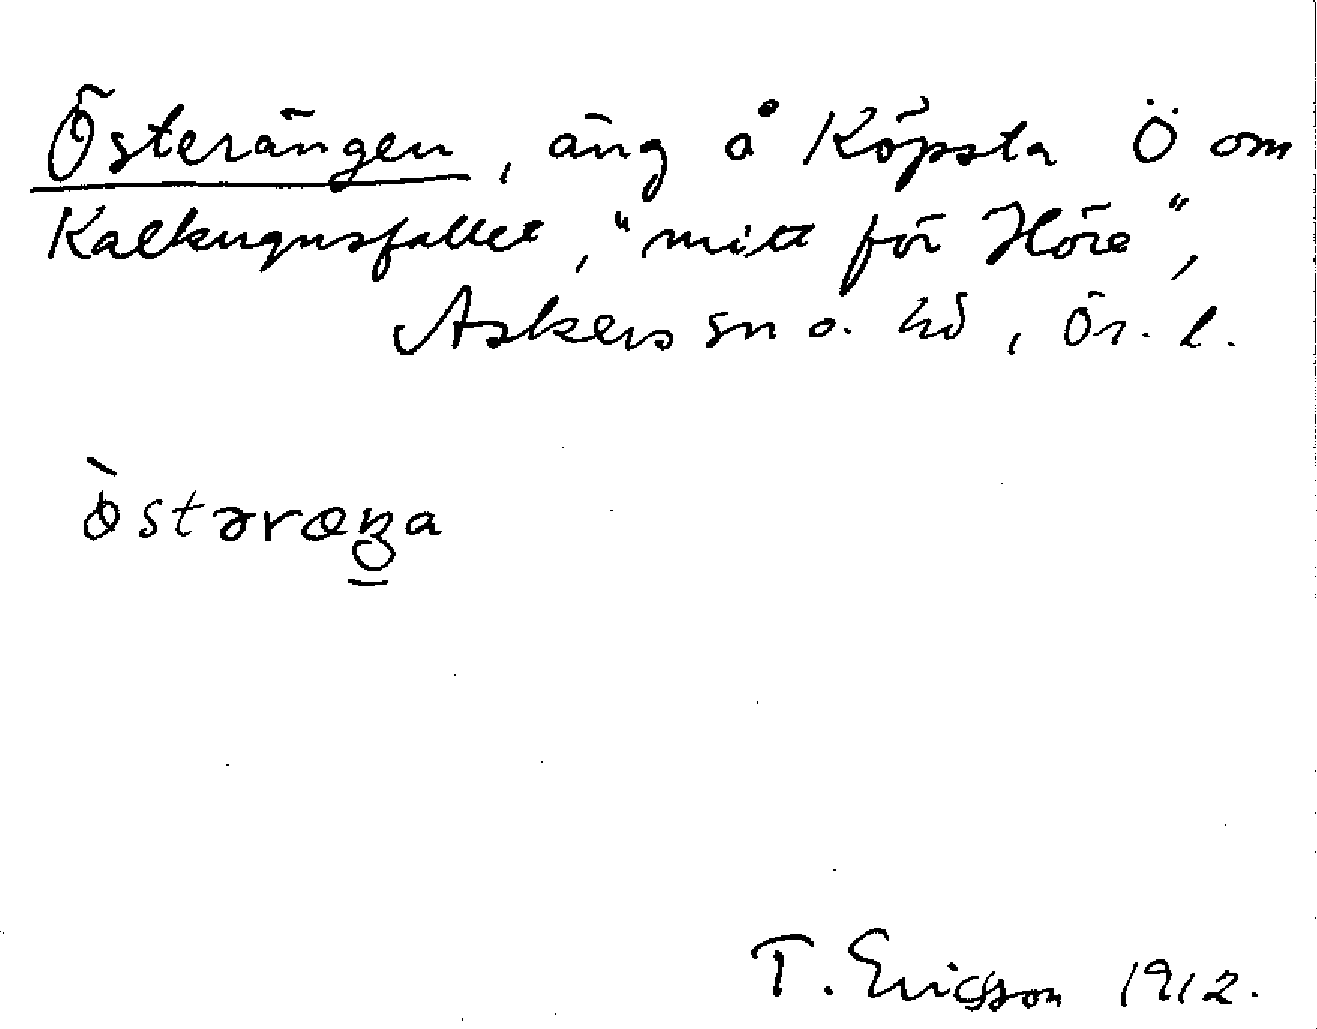 Österängen, äng å Köpsta Ö om
Kalkugnsfallet, "mitt för Höre",
Askers sn o. hd, Ör. l.
T. Ericsson 1912.